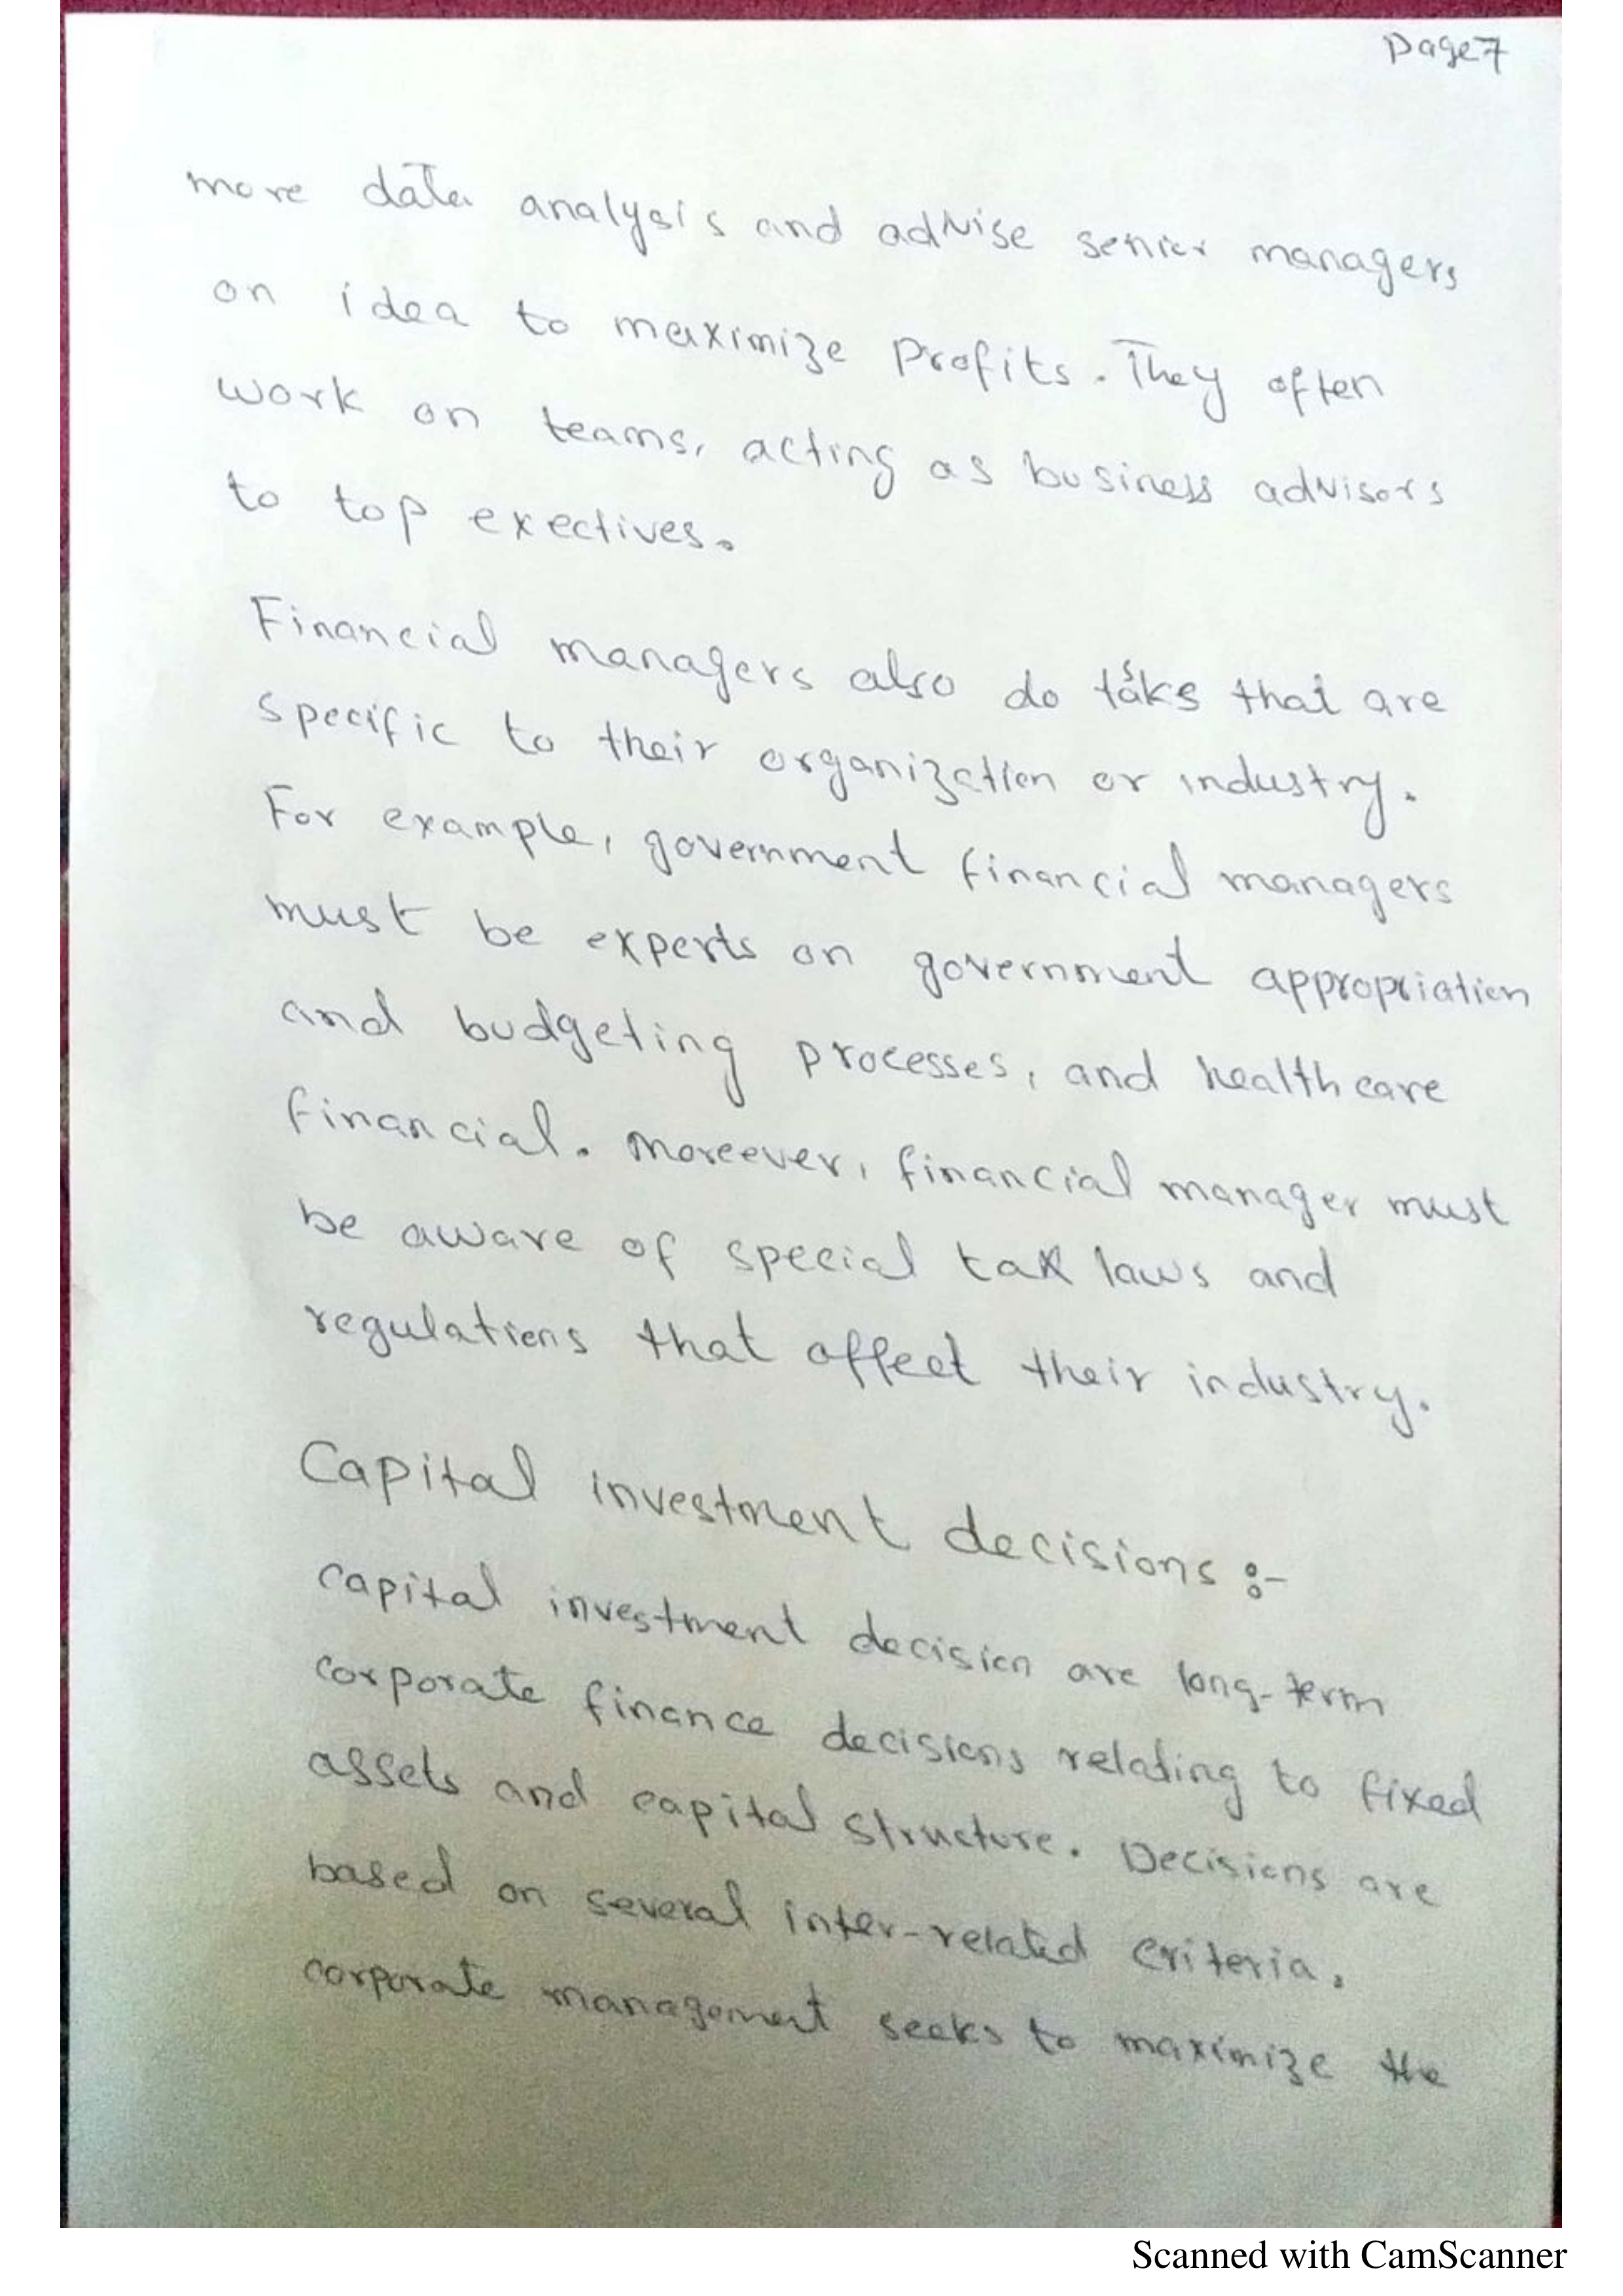 Page 7
more data analysis and advise senior managers
on idea to maximize profits. They often
work on teams, acting as business advisors
to top exectives.
Financial managers also do tasks that are
specific to their organization or industry.
For example, government financial managers
must be experts on government appropriation
and budgeting processes, and healthcare
financial. moreever, financial manager must
be aware of special tax laws and
regulations that affect their industry.
Capital investment decisions :-
capital investment decision are long-term
corporate finance decisions relating to fixed
assets and capital structure. Decisions are
based on several inter-related criteria.
corporate management seeks to maximize the
Scanned with CamScanner